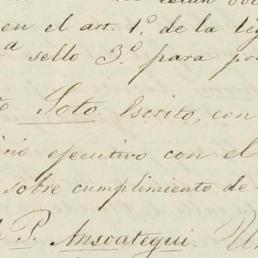 en el art. 1.º de la le
a sello 3.º para po
Soto. Escrito, con
ejecutivo con el
sobre cumplimiento de
P. Ansoategui. Un